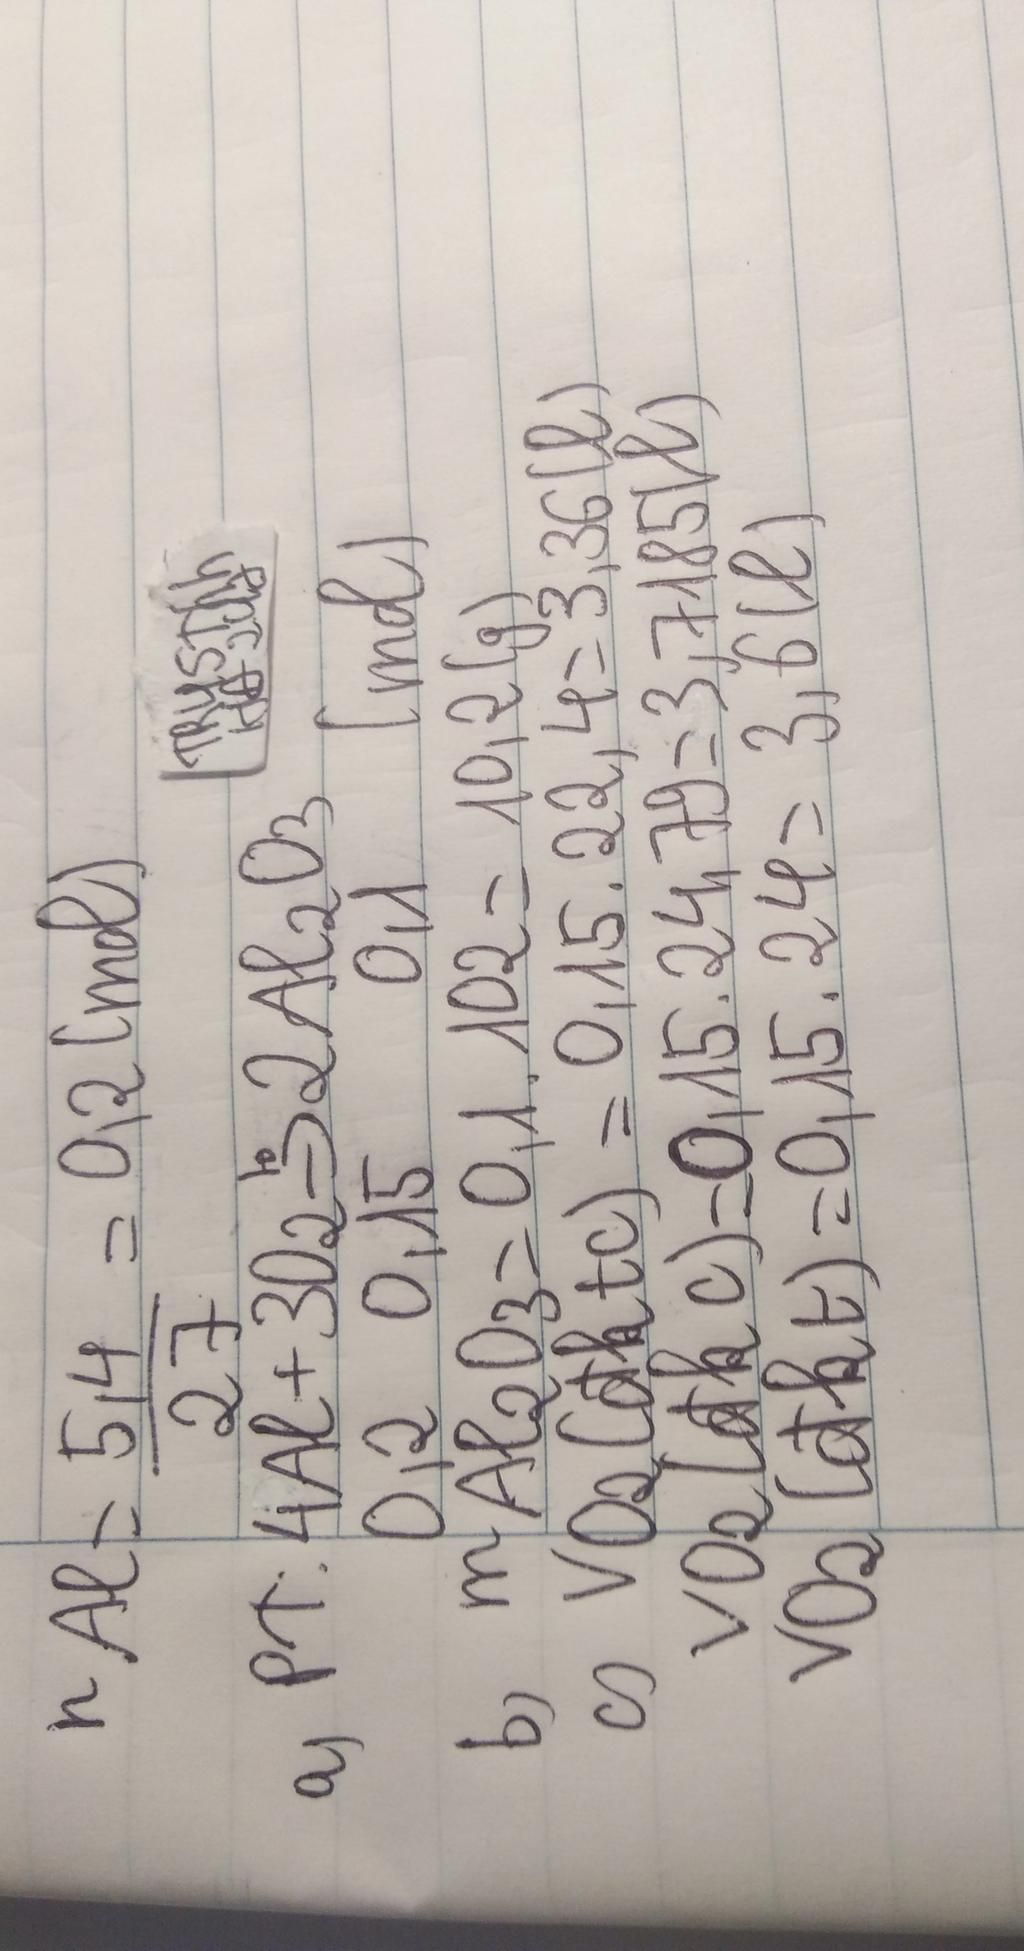 n Al = 5,4 = 0,2 (mol)
27
TRYSTAh
a, PT: 4Al + 3O2 -t°-> 2Al2O3
0,2 0,15 0,1 (mol)
b, m Al2O3 = 0,1.102 = 10,2(g)
c) VO2(đktc) = 0,15.22,4 = 3,36(l)
VO2(đkc) = 0,15.24,79 = 3,7185(l)
VO2(đkt) = 0,15.24 = 3,6(l)